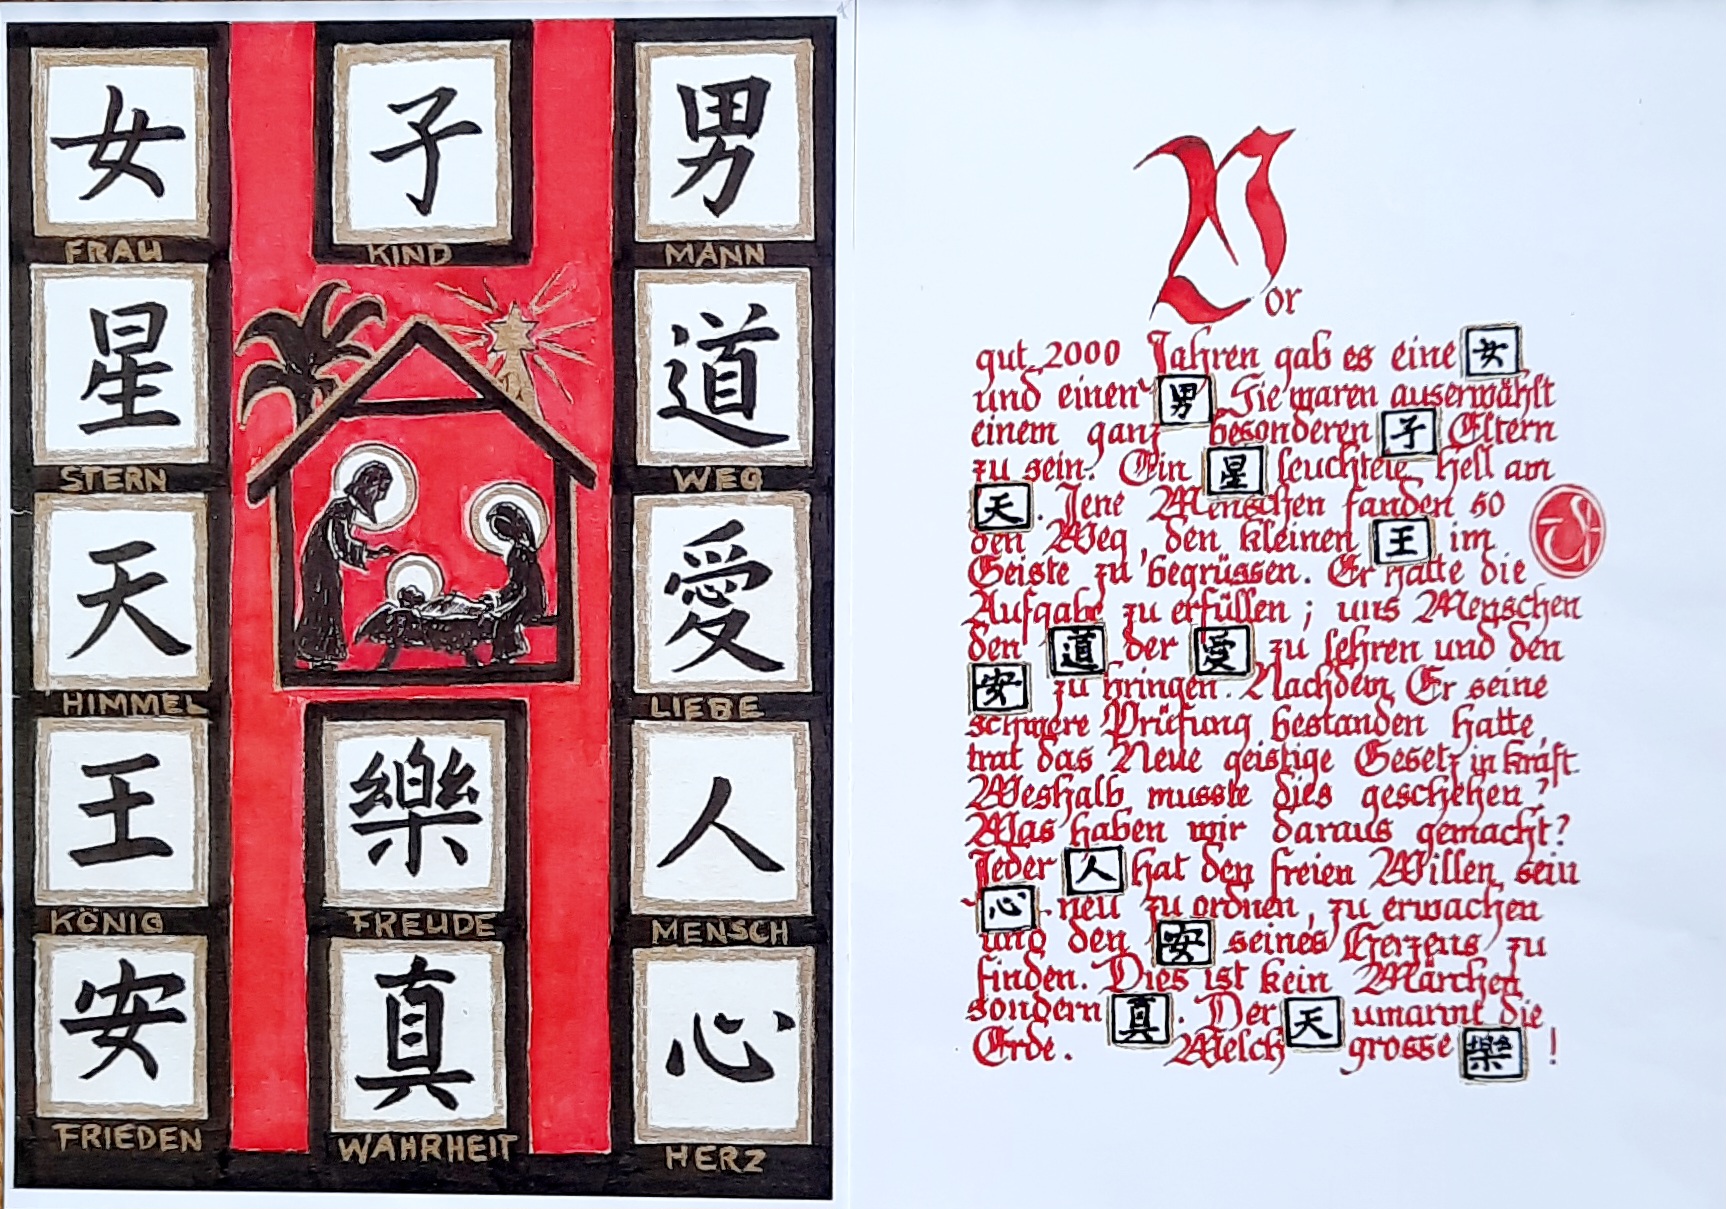 女 子 男
FRAU KIND MANN
星 道
STERN WEG
天 愛
HIMMEL LIEBE
王 樂 人
KÖNIG FREUDE MENSCH
安 真 心
FRIEDEN WAHRHEIT HERZ
Vor
gut 2000 Jahren gab es eine 女
und einen 男. Sie waren auserwählt
einem ganz besonderen 子 Eltern
zu sein. Ein 星 leuchtete hell am
天. Jene Menschen fanden so
den Weg, den kleinen 王 im
Geiste zu begrüssen. Er hatte die
Aufgabe zu erfüllen; uns Menschen
den 道 der 愛 zu lehren und den
安 zu bringen. Nachdem Er seine
schwere Prüfung bestanden hatte,
trat das Neue geistige Gesetz in kraft.
Weshalb musste dies geschehen?
Was haben wir daraus gemacht?
Jeder 人 hat den freien Willen, sein
心 neu zu ordnen, zu erwachen
und den 安 seines Herzens zu
finden. Dies ist kein Märchen
sondern 真. Der 天 umarmt die
Erde. Welch grosse 樂!